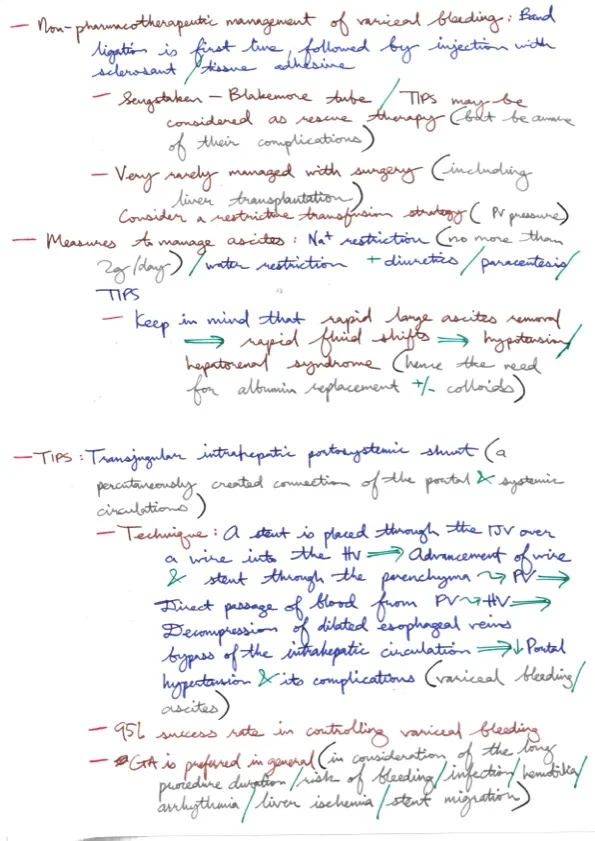 — Non-pharmacotherapeutic management of variceal bleeding : Band
ligation is first line, followed by injection with
sclerosant / tissue adhesive
— Sengstaken – Blakemore tube / TIPS may be
considered as rescue therapy (but be aware
of their complications)
— Very rarely managed with surgery (including
liver transplantation)
Consider a restrictive transfusion strategy (PV pressure)
— Measures to manage ascites : Na+ restriction (no more than
2g/day) / water restriction + diuretics / paracentesis /
TIPS
— Keep in mind that rapid large ascites removal
⟹ rapid fluid shifts ⟹ hypotension /
hepatorenal syndrome (hence the need
for albumin replacement +/- colloids)
— TIPS : Transjugular intrahepatic portosystemic shunt (a
percutaneously created connection of the portal & systemic
circulations)
— Technique : A stent is placed through the IJV over
a wire into the HV ⟹ Advancement of wire
& stent through the parenchyma ⇝ PV ⟹
Direct passage of blood from PV ⇝ HV ⟹
Decompression of dilated esophageal veins
bypass of the intrahepatic circulation ⟹ ↓ Portal
hypertension & its complications (variceal bleeding /
ascites)
— 95% success rate in controlling variceal bleeding
— GA is preferred in general (in consideration of the long
procedure duration / risk of bleeding / infection /
arrhythmia / liver ischemia / stent migration)